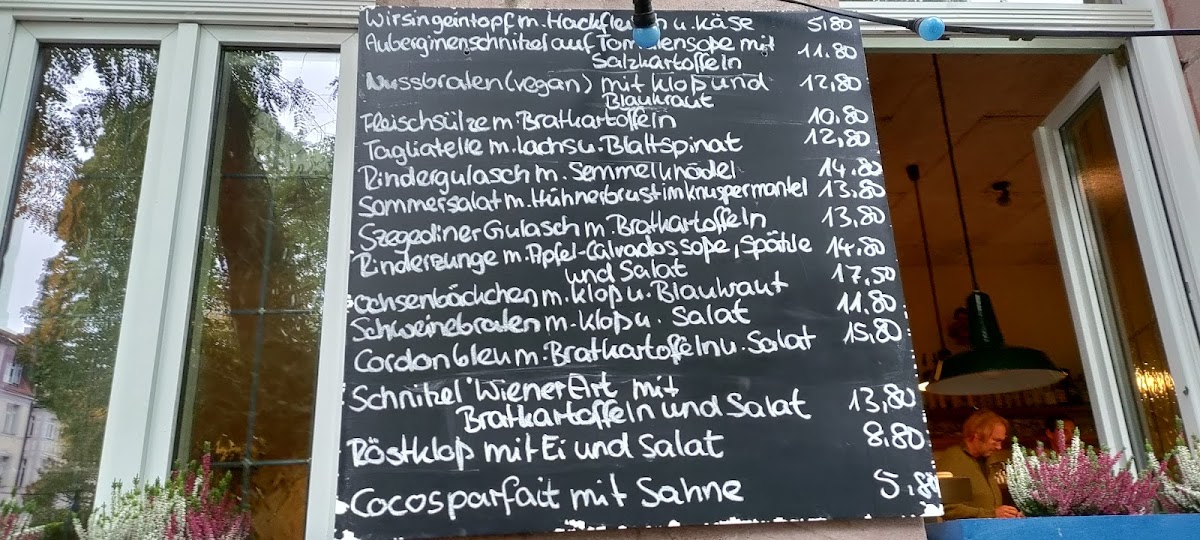 Wirsingeintopf m. Hackfleisch u. Käse 5,80
Auberginenschnitzel auf Tomatensoße mit
Salzkartoffeln 11.80
Nussbraten (vegan) mit Kloß und 12,80
Blaukraut
Fleischsülze m. Bratkartoffeln 10.80
Tagliatelle m. Lachs u. Blattspinat 12,80
Rindergulasch m. Semmelknödel 14.80
Sommersalat m. Hühnerbrust im Knuspermantel 13.80
Szegediner Gulasch m. Bratkartoffeln 13,80
Rinderzunge m. Apfel-Calvadossoße, Spätzle 14,80
und Salat
Ochsenbäckchen m. Kloß u. Blaukraut 17,50
Schweinebraten m. Kloß u. Salat 11.80
Cordon bleu m. Bratkartoffeln u. Salat 15,80
Schnitzel "Wiener Art mit
Bratkartoffeln und Salat 13,80
Röstkloß mit Ei und Salat 8,80
Cocosparfait mit Sahne 5,80